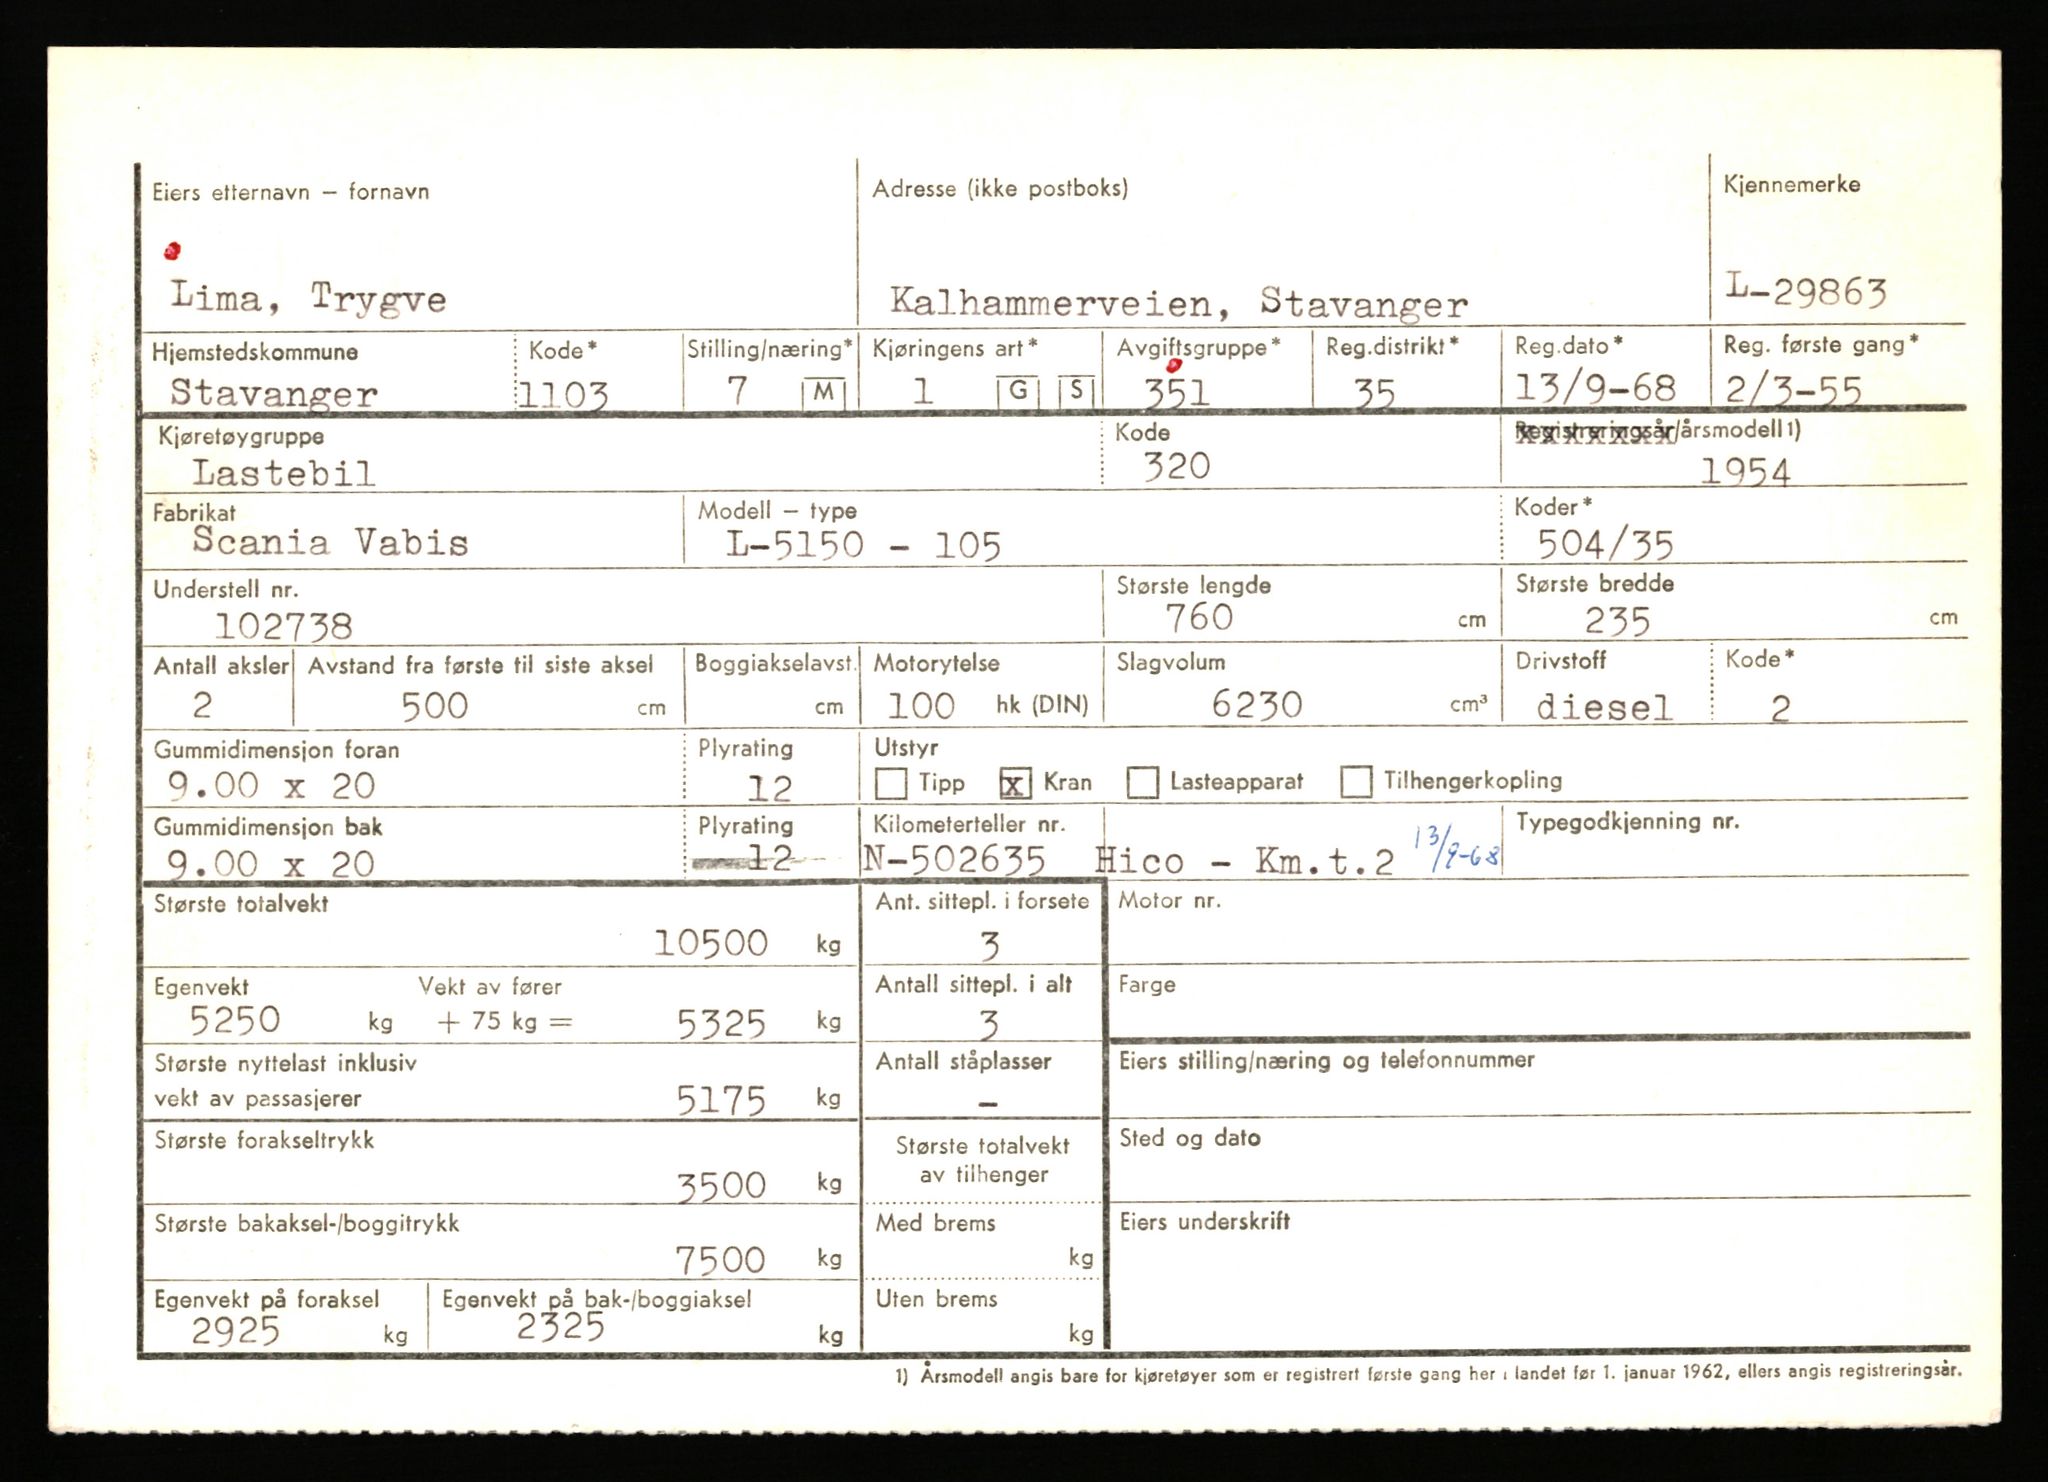 Eiers etternavn – fornavn
Adresse (ikke postboks)
Kjennemerke
Lima, Trygve
Kalhammerveien, Stavanger
L-29863
Hjemstedskommune Kode* Stilling/næring* Kjøringens art* Avgiftsgruppe* Reg.distrikt* Reg.dato* Reg. første gang*
Stavanger 1103 7 M 1 G S 351 35 13/9-68 2/3-55
Kjøretøygruppe Kode Registreringsår/årsmodell 1)
Lastebil 320 1954
Fabrikat Modell – type Koder*
Scania Vabis L-5150 - 105 504/35
Understell nr. Største lengde Største bredde
102738 760 cm 235 cm
Antall aksler Avstand fra første til siste aksel Boggiakselavst. Motorytelse Slagvolum Drivstoff Kode*
2 500 cm cm 100 hk (DIN) 6230 cm³ diesel 2
Gummidimensjon foran Plyrating Utstyr
9.00 x 20 12 Tipp x Kran Lasteapparat Tilhengerkopling
Gummidimensjon bak Plyrating Kilometerteller nr. Typegodkjenning nr.
9.00 x 20 12 N-502635 Hico - Km.t.2 13/9-68
Største totalvekt Ant. sittepl. i forsete Motor nr.
10500 kg 3
Egenvekt Vekt av fører Antall sittepl. i alt Farge
5250 kg + 75 kg = 5325 kg 3
Største nyttelast inklusiv Antall ståplasser Eiers stilling/næring og telefonnummer
vekt av passasjerer 5175 kg -
Største forakseltrykk Største totalvekt Sted og dato
av tilhenger
3500 kg
Største bakaksel-/boggitrykk Med brems Eiers underskrift
7500 kg kg
Egenvekt på foraksel Egenvekt på bak-/boggiaksel Uten brems
2925 kg 2325 kg kg
1) Årsmodell angis bare for kjøretøyer som er registrert første gang her i landet før 1. januar 1962, ellers angis registreringsår.